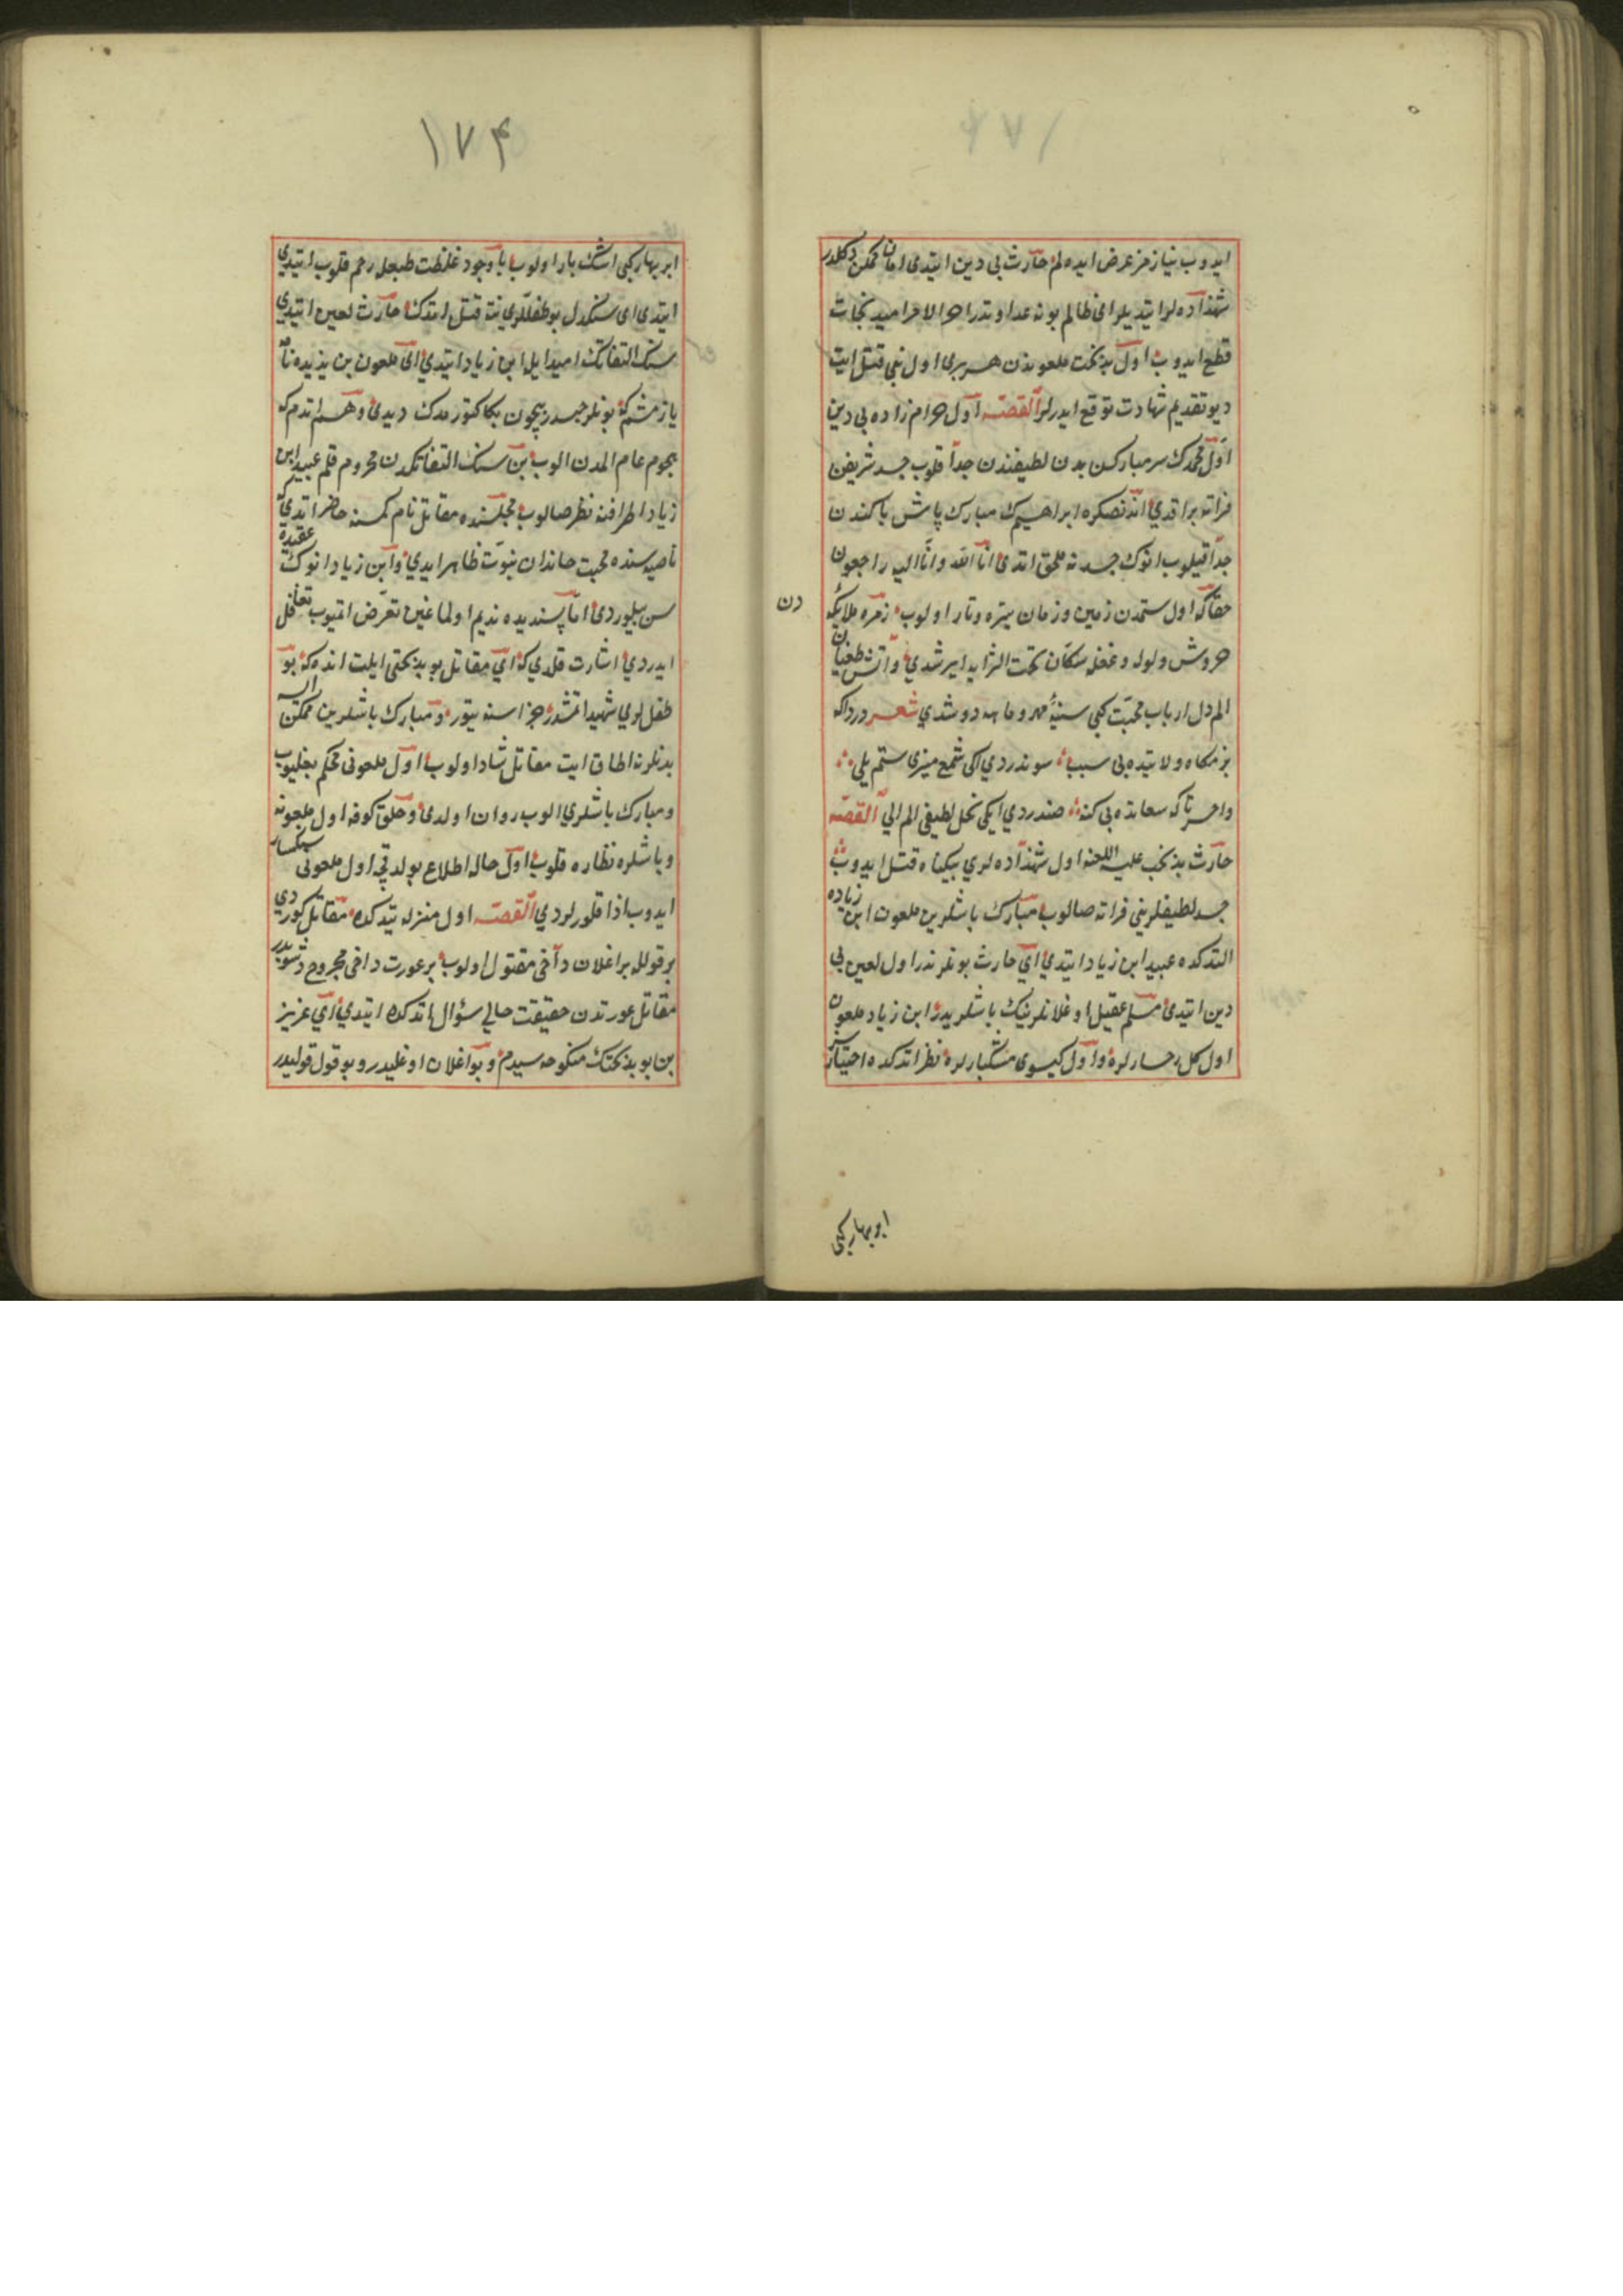 ايدوب نيازمز عرض ايده لم حارث بی دين ايتدی امان ممكن دكلدر
شهزاده لر ايتديلر ای ظالم بو نه عداوتدر اخر الامر اميد نجات
قطع ايدوب اول بدبخت ملعوندن هر بری اول بنی قتل ايت
ديو تقديم شهادت توقع ايدرلر القصه اول حرام زاده بی دين
اول محمدك سر مباركن بدن لطيفندن جدا قلوب جسد شريفن
فراته براقدی اندنصكره ابراهيمك مبارك باشن پاكندن
جدا قيلوب انوك جسدنه ملحق اتدی انا لله وانا اليه راجعون
حقا كه اول ستمدن زمين و زمان تيره و تار اولوب زمره ملايكه
دن
خروش ولوله و غلغله سكان تحت الثرايه ايرشدی و آتش طغيان
الم دل ارباب محبت كبی سينه مهر و ماهه دوشدی شعر درداكه
بزمكاه ولايتده بی سبب سوندردی ايكی شمع منيری ستم يلی
واحسرتا كه سعادته بی كنه صندردی ايكی نخل لطيفی الم الی القصه
حارث بدبخت عليه اللعنه اول شهزاده لری بيكناه قتل ايدوب
جسد لطيفلرينی فراته صالوب مبارك باشلرين ملعون ابن زياده
التدكده عبيد ابن زياد ايتدی ای حارث بونلر ندر اول لعين بی
دين ايتدی مسلم عقيل اوغلانلرينك باشلريدر ابن زياد ملعون
اول كل رخسارلره و اول كيسوی مشكبارلره نظر اتدكده اختيارسز
ابر بهار كبی
١٧٤
ابر بهار كبی اشك بار اولوب باوجود غلظت طبعله رحم قلوب ايتدی
ايتدی ای سنكدل بو طفللری نته قتل اتدك حارث لعين ايتدی
سنك التفاتك اميدايله ابن زياد ايتدی ای ملعون بن يزيده نامه
يازمشم كه بونلر حبسدر نيچون بكا كتورمدك ديدی وهم اتدم كه
هجوم عام المدن الوب بن سنك التفاتكدن محروم قلم عبيد ابن
زياد اطرافنه نظر صالوب مجلسنده مقاتل نام كمسنه حاضر ايدی كه
ناصيه سنده محبت خاندان نبوت ظاهر ايدی و ابن زياد انوك عقيده
سن بيلوردی اما پسنديده نديم اولماغين تعرض اتميوب تغافل
ايدردی اشارت قلدی كه ای مقاتل بو بدبختی ايلت انده كه بو
طفللری شهيد اتمشدر جزاسنه يتور و مبارك باشلرين ممكن اولسه
بدنلرنه الحاق ايت مقاتل شاد اولوب اول ملعونی محكم بغليوب
و مبارك باشلری الوب روان اولدی و خلق كوفه اول ملعونه
و باشلره نظاره قلوب اول حاله اطلاع بولدقچه اول ملعونی سنكسار
ايدوب اذا قلورلردی القصه اول منزله يتدكده مقاتل كوردی
بر قولله بر اغلان داخی مقتول اولوب بر عورت داخی مجروح دوشوبدر
مقاتل عورتدن حقيقت حالی سؤال اتدكده ايتدی ای عزيز
بن بو بدبختك منكوحه سيدم و بو اغلان اوغليدر و بو قول قوليدر